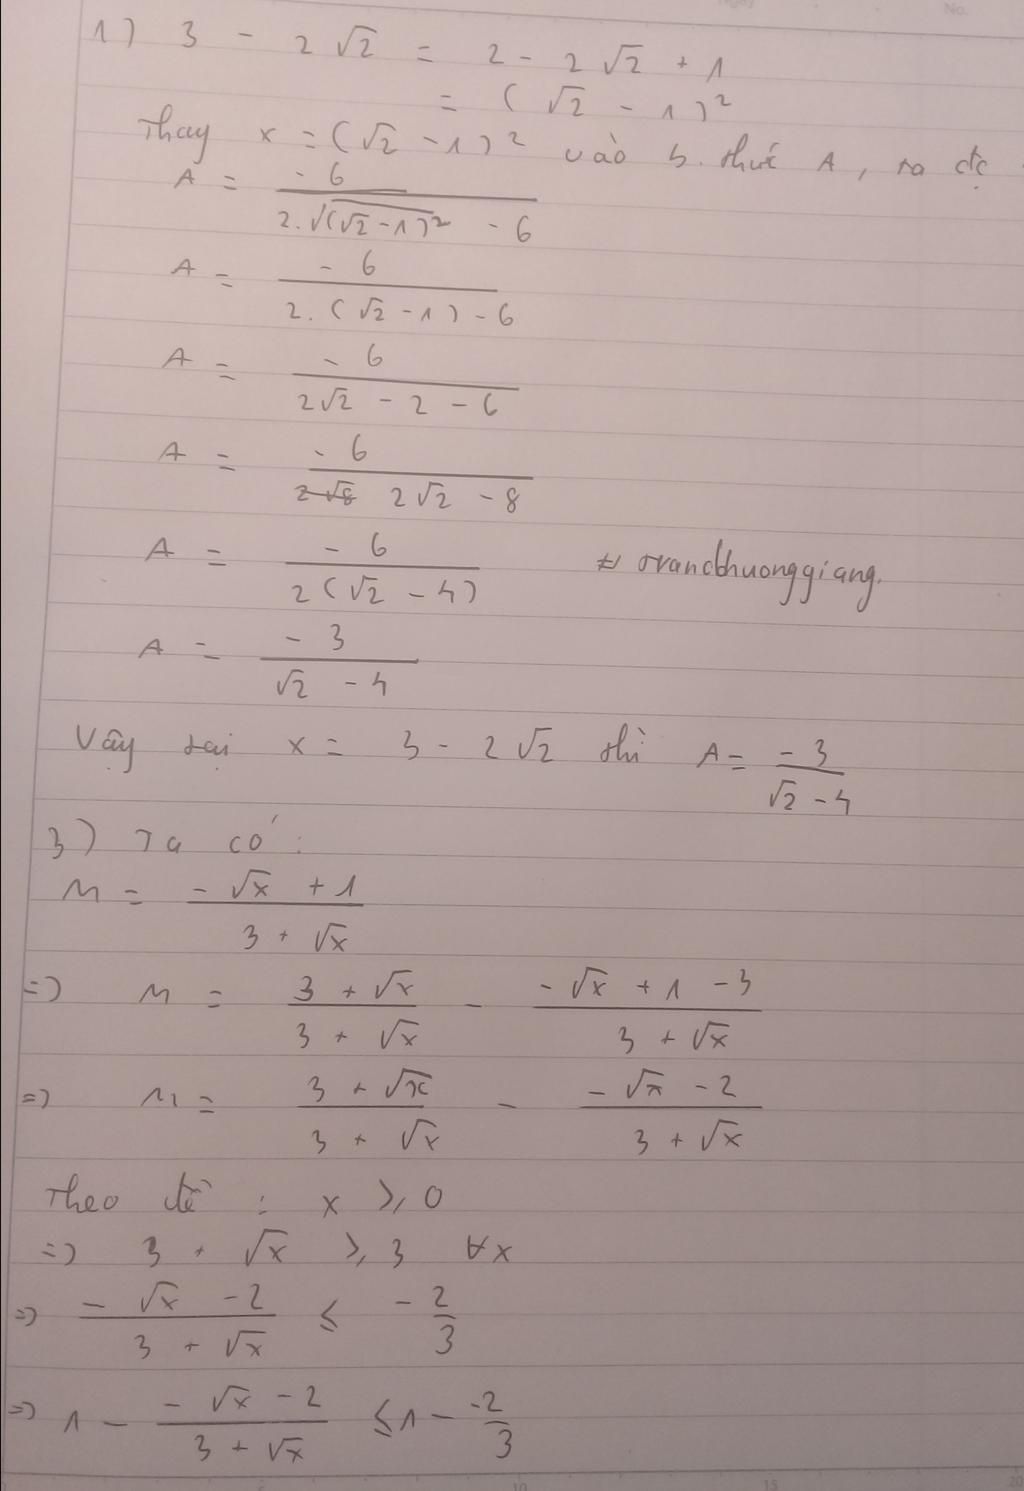 1) 3 - 2√2 = 2 - 2√2 + 1
= (√2 - 1)²
Thay x = (√2 - 1)² vào b. thức A, ta đc
A = -6 / (2.√(√2 - 1)² - 6)
A = -6 / (2.(√2 - 1) - 6)
A = -6 / (2√2 - 2 - 6)
A = -6 / (2√2 - 8)
A = -6 / (2(√2 - 4))
trancthuonggiang.
A = -3 / (√2 - 4)
Vậy tại x = 3 - 2√2 thì A = -3 / (√2 - 4)
3) Ta có:
M = (-√x + 1) / (3 + √x)
=> M = (3 + √x) / (3 + √x) - (-√x + 1 - 3) / (3 + √x)
=> M = (3 + √x) / (3 + √x) - (-√x - 2) / (3 + √x)
Theo đề : x ≥ 0
=> 3 + √x ≥ 3 ∀x
=> (-√x - 2) / (3 + √x) ≤ -2/3
=> 1 - (-√x - 2) / (3 + √x) ≤ 1 - -2/3